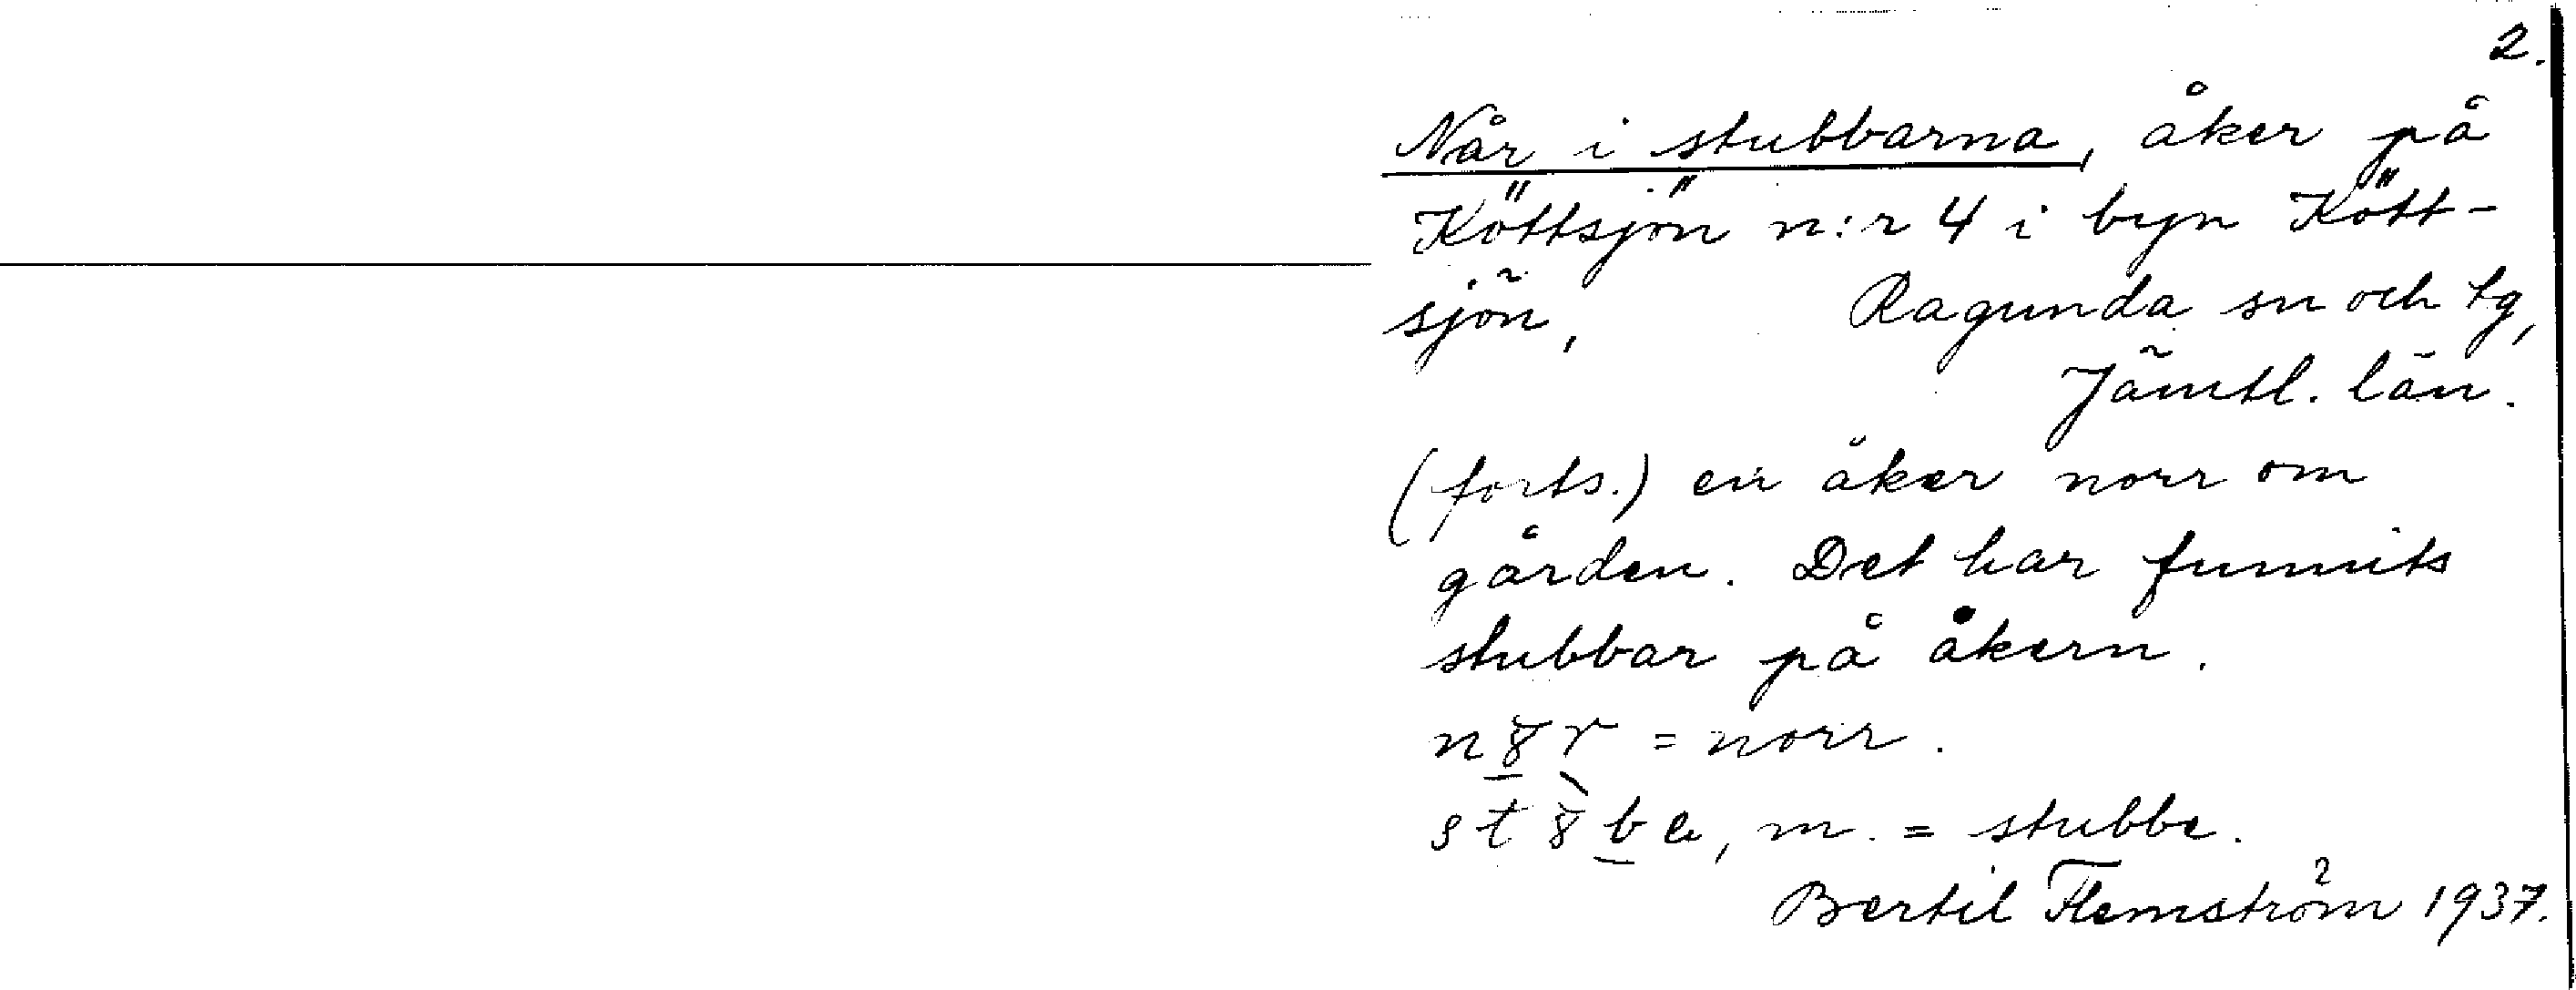 2.
Når i stubbarna, åker på
Köttsjön n:r 4 i byn Kött-
sjön, Ragunda sn och tg,
Jämtl. län.
(forts.) en åker norr om
gården. Det har funnits
stubbar på åkern.
= norr.
, m. = stubbe.
Bertil Flemström 1937.